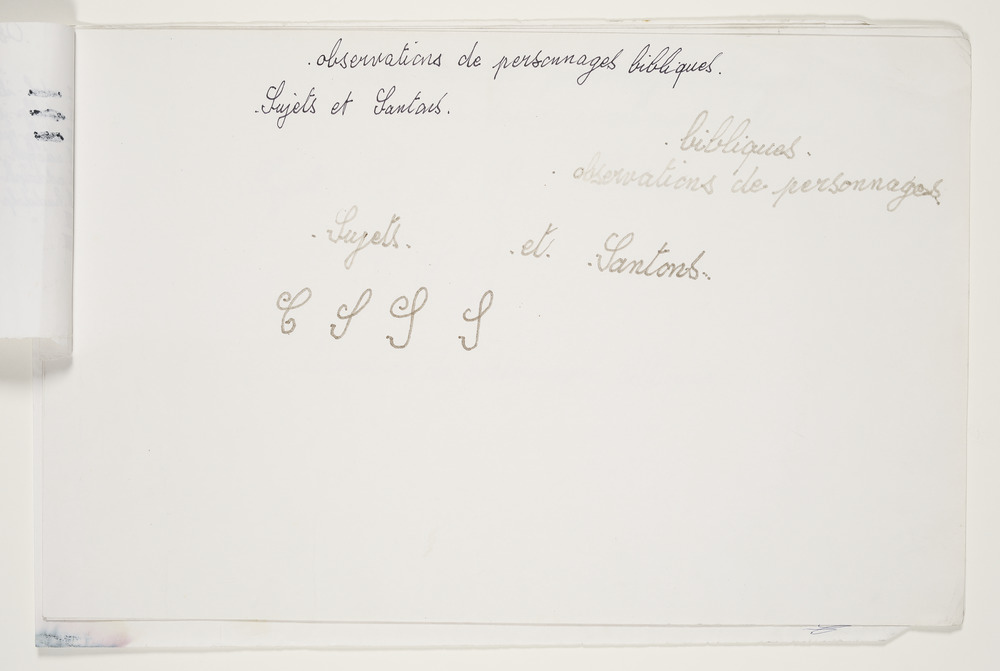 .observations de personnages bibliques.
.Sujets et Santons.
. bibliques.
. observations de personnages.
.Sujets. .et. .Santons..
C S S S